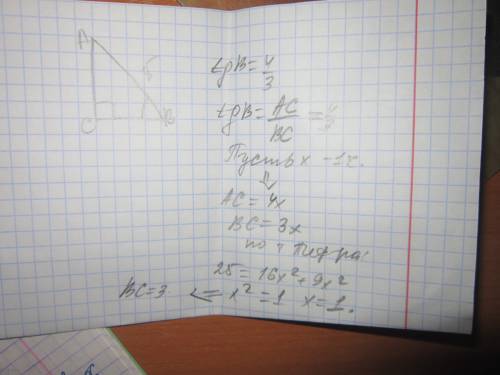 A
5
C
B
tgB = 4/3
tgB = AC/BC = 4/3
Пусть x - 1ч.
⇓
AC = 4x
BC = 3x
по т Пифагра:
25 = 16x² + 9x²
BC = 3 <= x² = 1 x = 1.